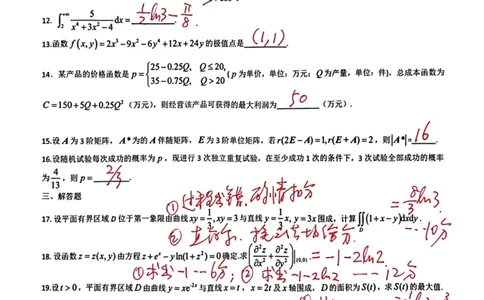 12. $\int_{2}^{+\infty} \frac{5}{x^4+3x^2-4} dx =$ $\frac{1}{2}\ln 3 - \frac{\pi}{8}$.
13.函数 $f(x,y)=2x^3-9x^2-6y^4+12x+24y$ 的极值点是 (1,1).
14. 某产品的价格函数是 $p=\begin{cases}25-0.25Q, & Q\leq 20,\\ 35-0.75Q, & Q>20\end{cases}$ (p为单价,单位:万元;Q为产量,单位:件),总成本函数为
$C=150+5Q+0.25Q^2$ (万元),则经营该产品可获得的最大利润为 50 (万元).
15.设A为3阶矩阵,A*为的A伴随矩阵,E为3阶单位矩阵,若 $r(2E-A)=1, r(E+A)=2$,则 $|A^*|=$ 16.
16.设随机试验每次成功的概率为p,现进行3次独立重复试验,在至少成功1次的条件下,3次试验全部成功的概率
为 $\frac{4}{13}$,则 $p=$ 2/3.
三、解答题
① 过程或答错,酌情扣分
17.设平面有界区域D位于第一象限由曲线 $xy=\frac{1}{3}, xy=3$ 与直线 $y=\frac{1}{3}x, y=3x$ 围成,计算 $\iint_D(1+x-y)dxdy$. $=\frac{8}{3}\ln 3$
---10分
18. 设函数 $z=z(x,y)$ 由方程 $z+e^x-y\ln(1+z^2)=0$ 确定.求 $\left(\frac{\partial^2 z}{\partial x^2}+\frac{\partial^2 z}{\partial y^2}\right)\Big|_{(0,0)}$. $=-1-2\ln 2$
---6分;② 求出 -1-2ln2 ---12分
19.设 $t>0$,平面有界区域D由曲线 $y=xe^{-2x}$ 与直线 $x=t$,$x=2t$ 及x轴围成,D的面积为 $S(t)$,求 $S(t)$ 的最大值.